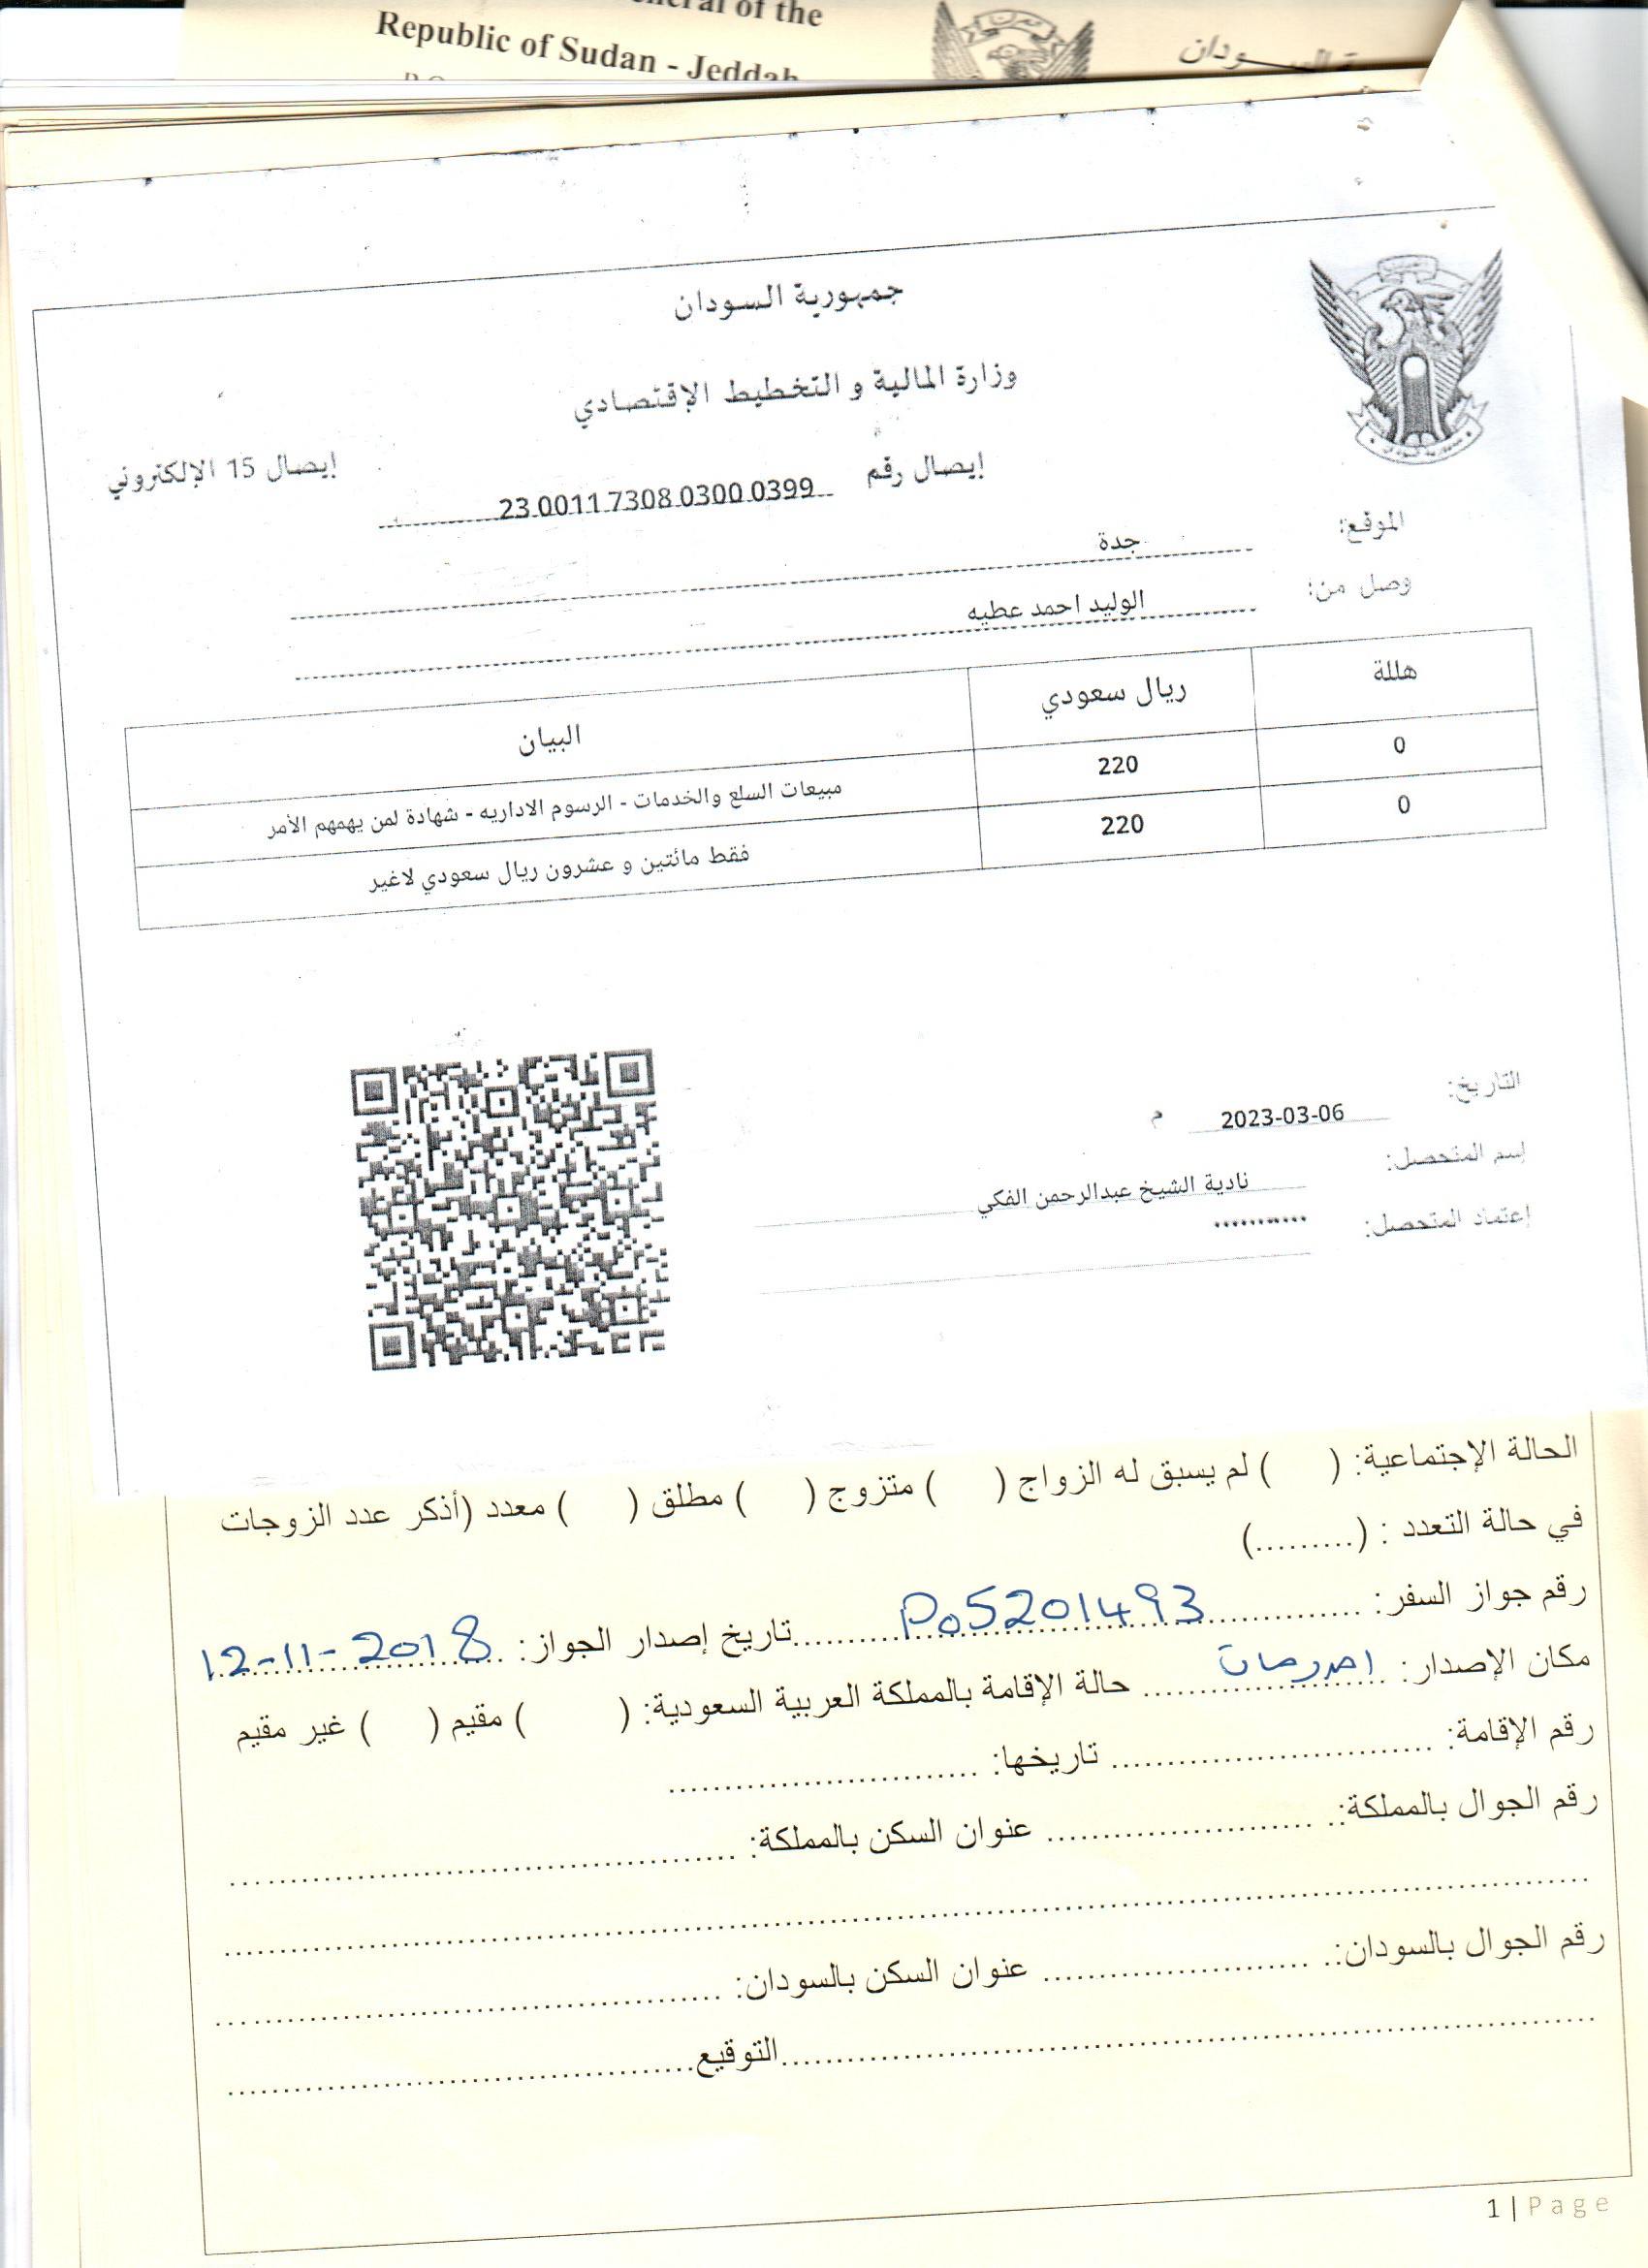 of the
Republic of Sudan - Jeddah
جمهورية السودان
وزارة المالية و التخطيط الإقتصادي
إيصال رقم 23 0011 7308 0300 0399 إيصال 15 الإلكتروني
الموقع: جدة
وصل من: الوليد احمد عطيه
هللة ريال سعودي البيان
0 220 مبيعات السلع والخدمات - الرسوم الاداريه - شهادة لمن يهمهم الأمر
0 220 فقط مائتين و عشرون ريال سعودي لاغير
التاريخ: 2023-03-06 م
إسم المتحصل: نادية الشيخ عبدالرحمن الفكي
إعتماد المتحصل: **********
الحالة الإجتماعية: ( ) لم يسبق له الزواج ( ) متزوج ( ) مطلق ( ) معدد (أذكر عدد الزوجات
في حالة التعدد : (.........)
رقم جواز السفر: P05201493 تاريخ إصدار الجواز: 12-11-2018
مكان الإصدار: امدرمان حالة الإقامة بالمملكة العربية السعودية: ( ) مقيم ( ) غير مقيم
رقم الإقامة: ............................ تاريخها: ............................
رقم الجوال بالمملكة:.. ........................ عنوان السكن بالمملكة: ............................................
رقم الجوال بالسودان:.. ........................ عنوان السكن بالسودان: ............................................
التوقيع..........................................
1 | Page